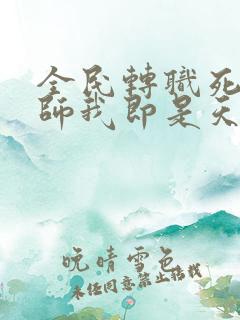 全民轉職死
師我即是天
晚晴雪色
未经同意禁止搭载